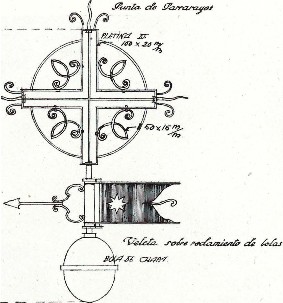 Punta de Pararayos
PLETINA DE
100 x 20 m/m
50 x 16 m/m
Veleta sobre rodamiento de bolas
BOLA DE CHAPA